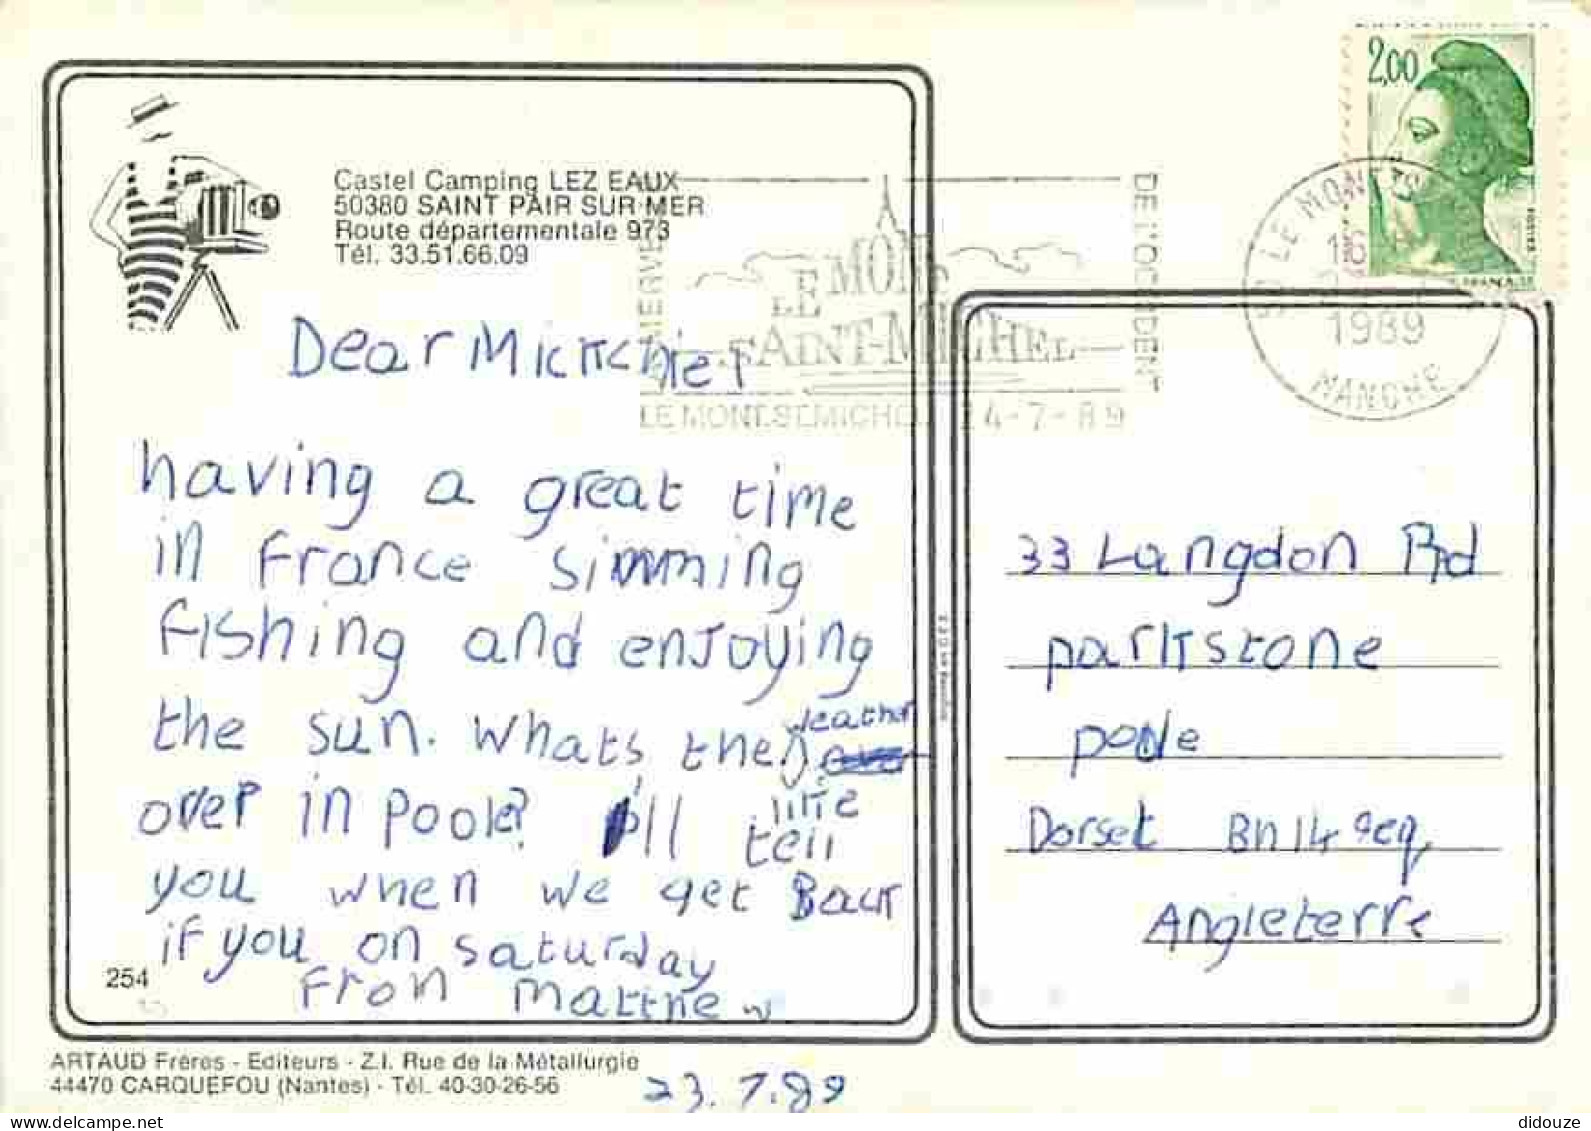 Castel Camping LEZ EAUX
50380 SAINT PAIR SUR MER
Route départementale 973
Tél. 33.51.66.09
2,00
POSTES
FRANCE
LE MONT
1989
MANCHE
LE MONT
SAINT-MICHEL
DE L'OCCIDENT
LE MONT.ST.MICHEL 14-7-89
Dear
having a great time
in France simming
fishing and enjoying
the sun. Whats the weather
like
over in poole? I'll tell
you when we get Back
if you on saturday
From Matthew
33 Langdon Rd
parkstone
poole
Dorset Bn14 9eq
Angleterre
254
ARTAUD Frères - Editeurs - Z.I. Rue de la Métallurgie
44470 CARQUEFOU (Nantes) - Tél. 40-30-26-56
23.7.89
didouze